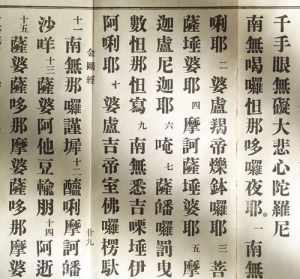 千手眼無礙大悲心陀羅尼
南無喝囉怛那哆囉夜耶一南無
唎耶二婆盧羯帝爍鉢囉耶三菩
薩埵婆耶四摩訶薩埵婆耶五摩
迦盧尼迦耶六唵七薩皤囉罰曳
數怛那怛寫九南無悉吉嘌埵伊
阿唎耶十婆盧吉帝室佛囉楞馱
金剛經 廿九
十一南無那囉謹墀十二醯唎摩訶皤
沙咩十三薩婆阿他豆輸朋十四阿逝
十五薩婆薩哆那摩婆薩哆那摩婆